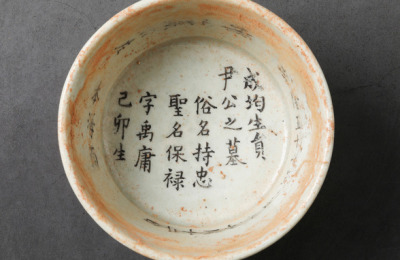 成均生貟
尹公之墓
俗名持忠
聖名保禄
字禹庸
己卯生